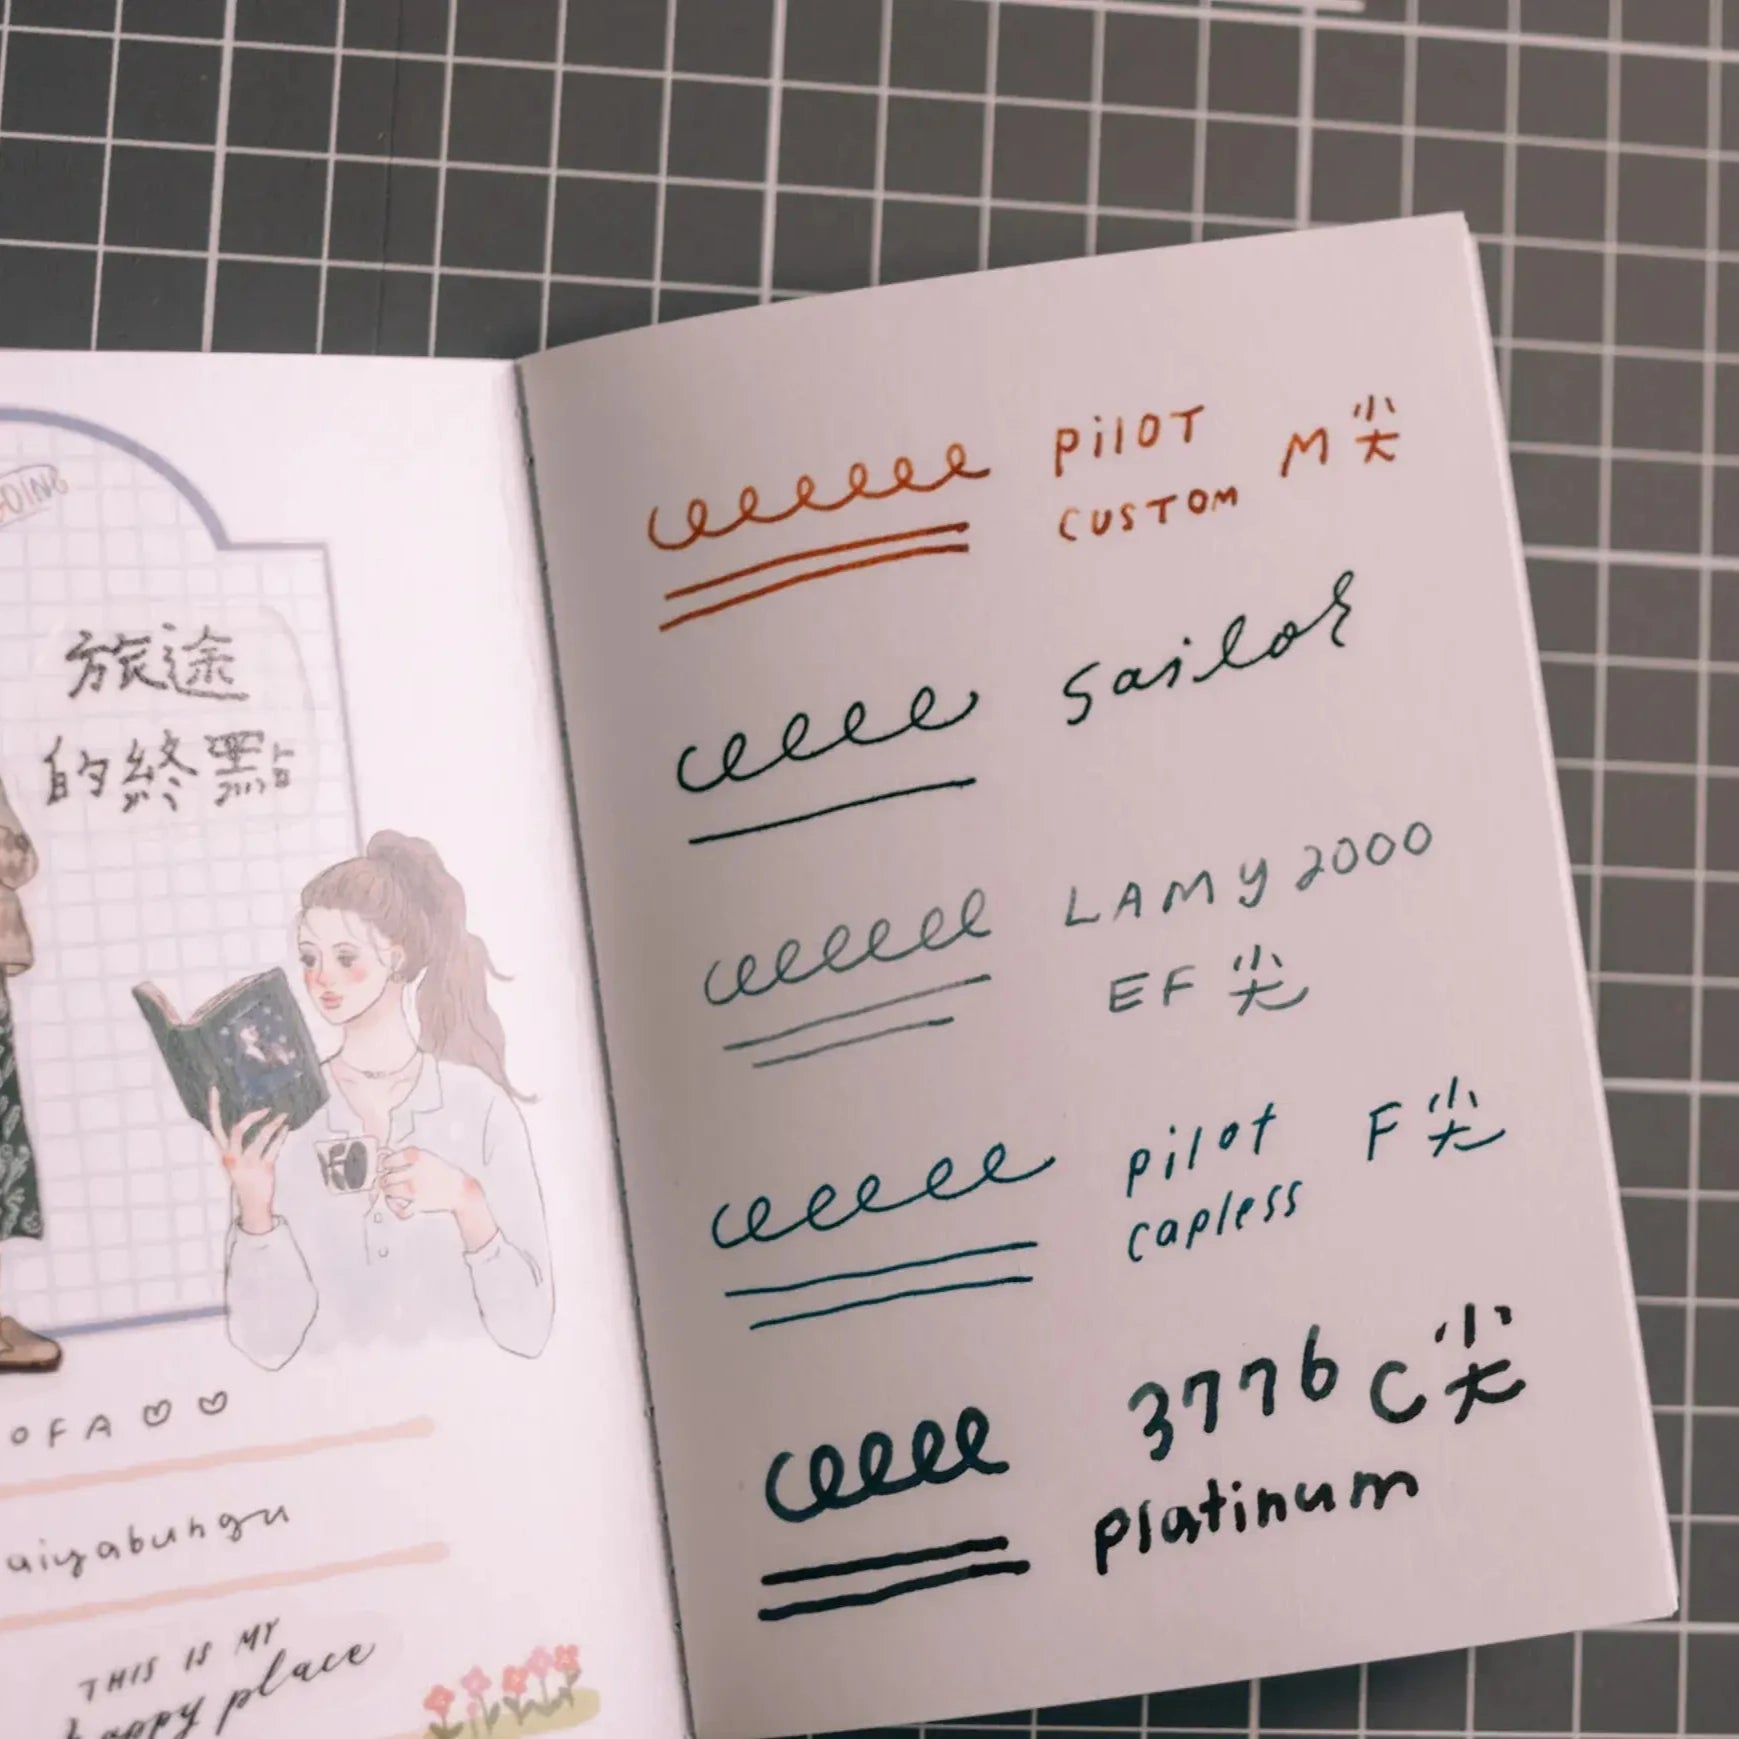 旅途
的終點
OFA
aiyabungu
THIS IS MY
happy place
PILOT M尖
CUSTOM
Sailor
LAMY 2000
EF尖
pilot F尖
capless
3776 C尖
platinum